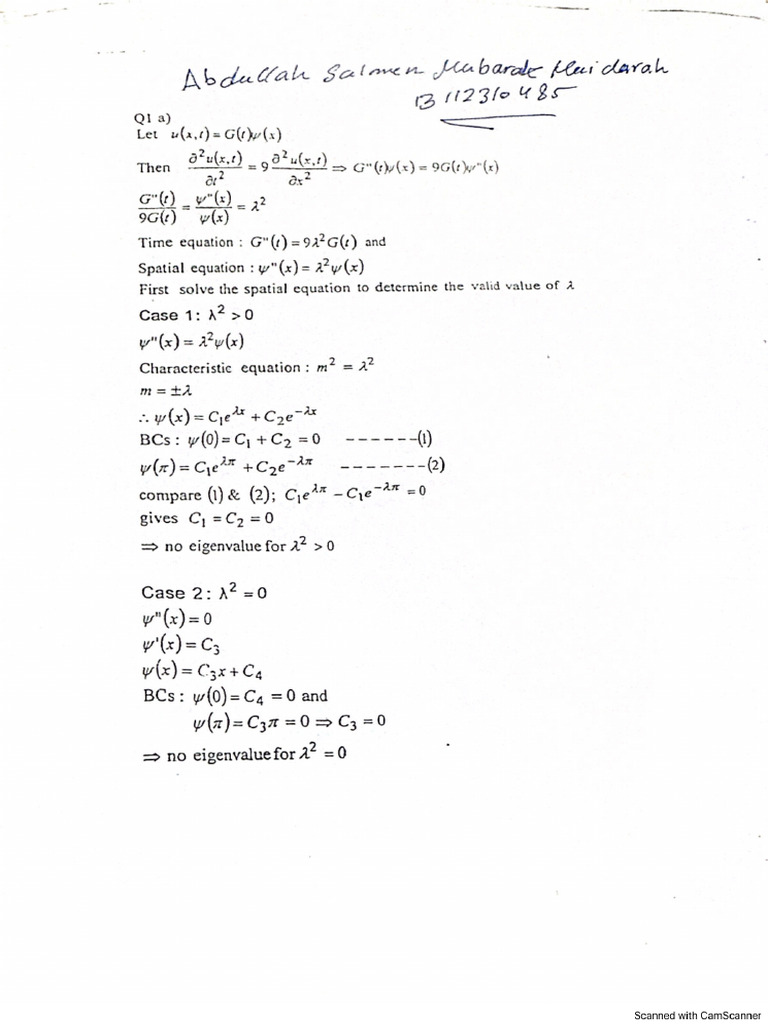 Abdullah Salmen Mubarak Muidarah
B 112310485
Q1 a)
Let u(x,t) = G(t)ψ(x)
Then ∂²u(x,t)/∂t² = 9 ∂²u(x,t)/∂x² ⇒ G"(t)ψ(x) = 9G(t)ψ"(x)
G"(t)/9G(t) = ψ"(x)/ψ(x) = λ²
Time equation : G"(t) = 9λ²G(t) and
Spatial equation : ψ"(x) = λ²ψ(x)
First solve the spatial equation to determine the valid value of λ
Case 1: λ² > 0
ψ"(x) = λ²ψ(x)
Characteristic equation : m² = λ²
m = ±λ
∴ ψ(x) = C₁e^{λx} + C₂e^{−λx}
BCs : ψ(0) = C₁ + C₂ = 0 ------(1)
ψ(π) = C₁e^{λπ} + C₂e^{−λπ} -------(2)
compare (1) & (2); C₁e^{λπ} − C₁e^{−λπ} = 0
gives C₁ = C₂ = 0
⇒ no eigenvalue for λ² > 0
Case 2: λ² = 0
ψ"(x) = 0
ψ'(x) = C₃
ψ(x) = C₃x + C₄
BCs : ψ(0) = C₄ = 0 and
ψ(π) = C₃π = 0 ⇒ C₃ = 0
⇒ no eigenvalue for λ² = 0
Scanned with CamScanner